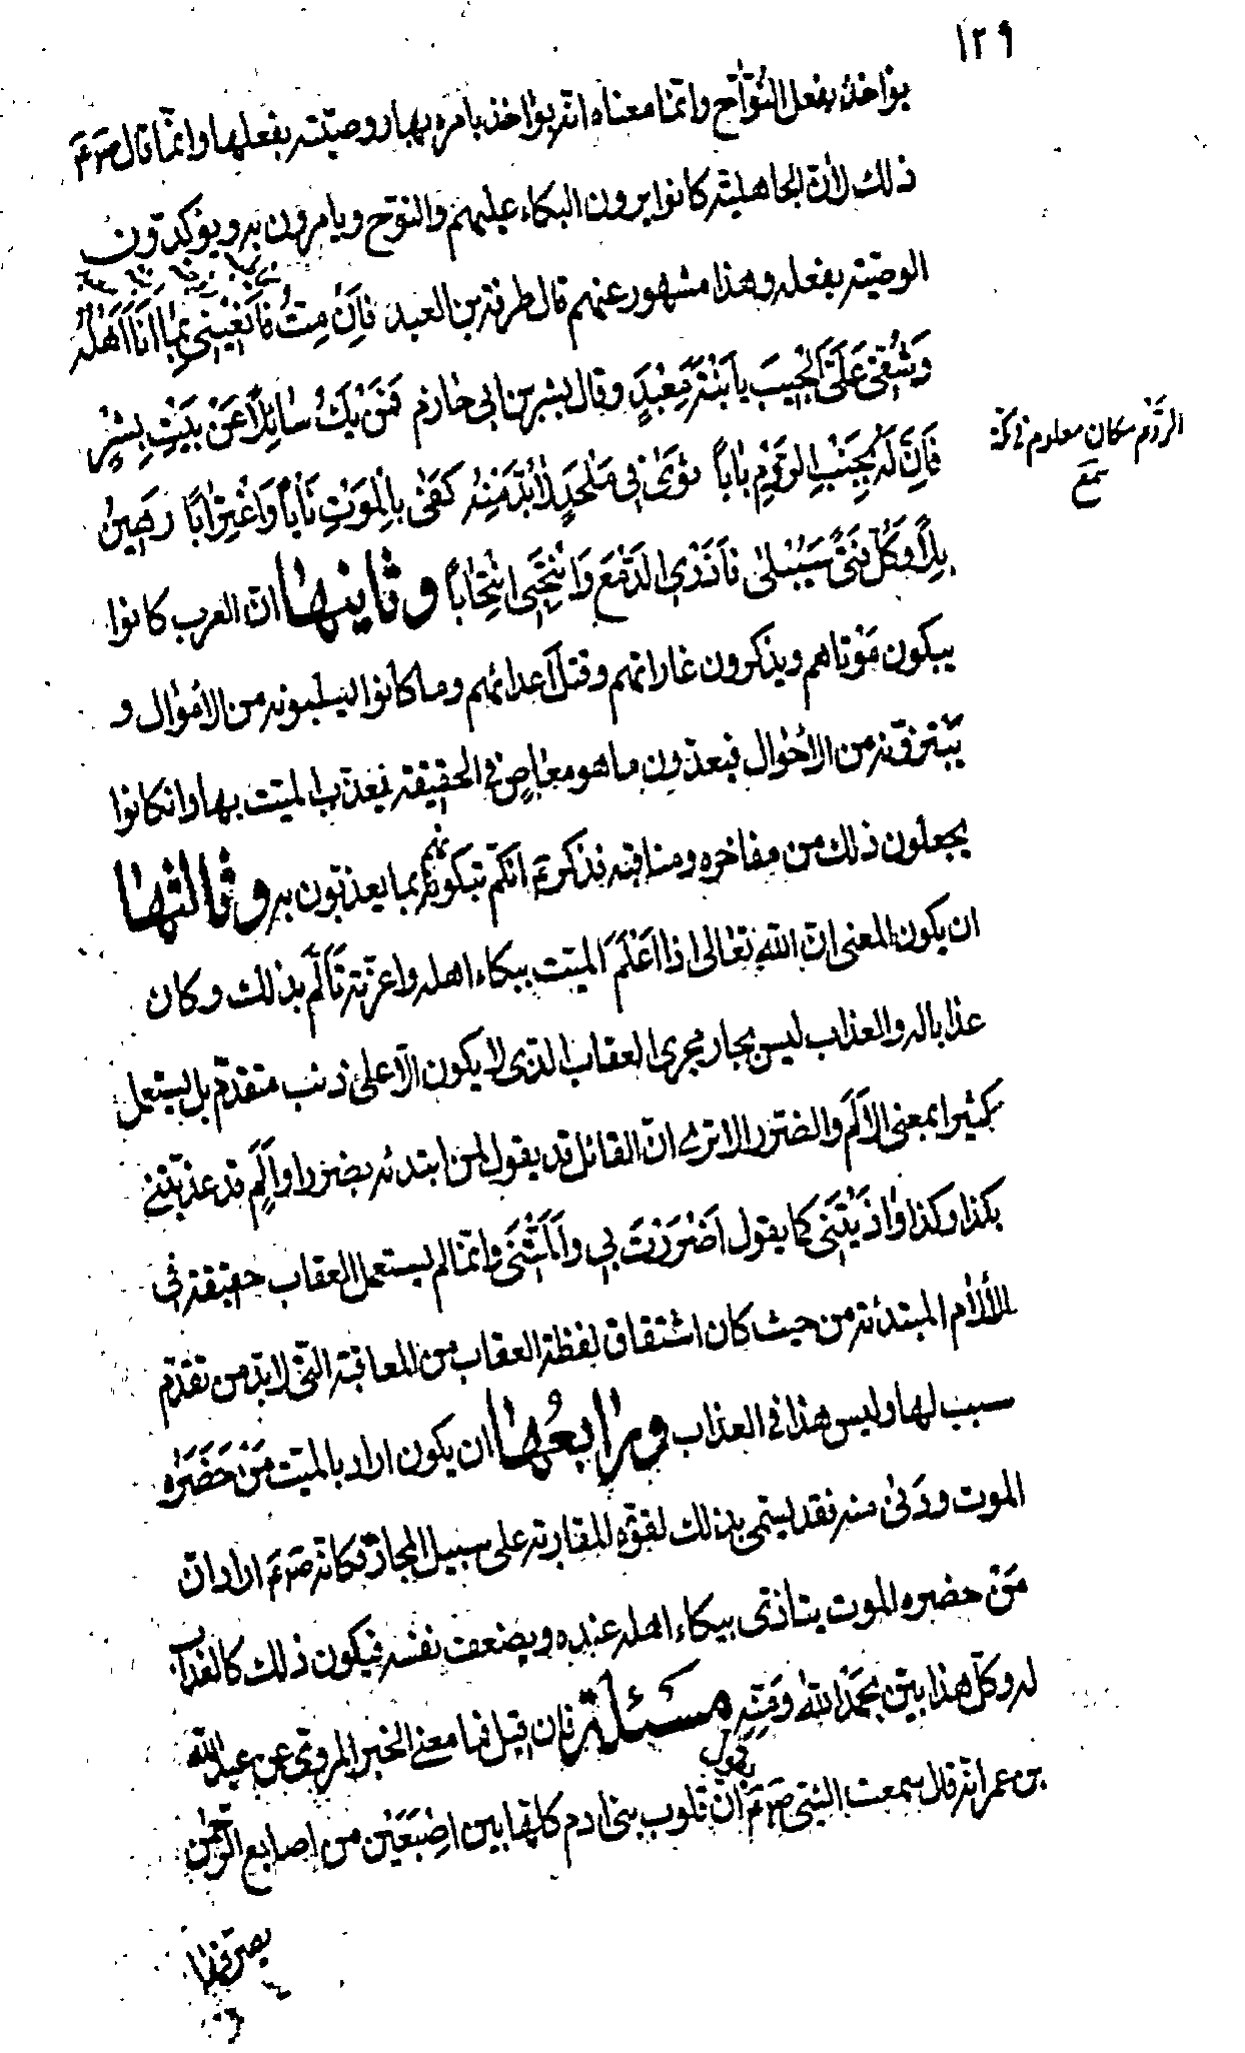 ١٢٩
يؤاخذ بفعل النوّاح وانّما معناه انّه يؤاخذ بامره بها ووصيّته بفعلها وانّما قال ص م ع
ذلك لأنّ الجاهليّة كانوا يرون البكاء عليهم والنوح ويامرون به ويؤكّدون
الوصيّة بفعله وهذا مشهور عنهم قال طرفة بن العبد فَاِنْ مِتُّ فَانْعَيْنِي بِمٰا اَنَا اَهْلُهُ
وَشُقّي عَلَيَّ الْجَيْبَ يا ابْنَةَ مَعْبَدٍ وقال بشر بن ابي خازم فَمَنْ يَكُ سٰائِلاً عَنْ بَيْتِ بِشْرٍ
فَاِنَّ لَهُ بِجَنْبِ الرَّدْمِ بٰاباً ثوٰى فِي مَلْحَدٍ لٰابُدَّ مِنْهُ كَفٰى بِالْمَوْتِ نَأْياً وَاغْتِرٰابًا رَهينُ
بِلىً وَكُلُّ فَتىً سَيَبْلىٰ فَاَذْرِي الدَّمْعَ وَانْتَحِبِي انْتِحٰاباً وثانيها انّ العرب كانوا
يبكون مَوْتاهم ويذكرون غاراتهم وقتل اَعدائهم وما كانوا يسلبونه من الأمْوال و
يبتزونه من الأحْوال فيعدّون ما هو معٰاصٍ في الحقيقة يعذّب الميّت بها وانكانوا
يجعلون ذلك من مفاخره ومناقبه فذكر ع م انّكم تبكونهم بما يعذبون به وثالثها
ان يكون المعنى انّ اللّٰه تعٰالى اذا اَعْلَمَ الميّت ببكاء اهله واعزّته تَأَلَّم بذلك وكان
عذابا له والعذاب ليس بجار مجرى العقاب الذى لا يكون الّا على ذنب متقدّم بل يستعمل
كثيرا بمعنى الاَلَم والضّرر الا ترى انّ القائل قد يقول لمن ابتدئه بضرر او اَلَمٍ قد عذّبتني
بكذا وكذا وٰاذَيْتَنى كما يقول اَضْرَرْتَ بي واٰلَمْتَنى وانّما لم يستعمل العقاب حقيقة فى
الألام المبتدئة من حيث كان اشتقاق لفظة العقاب من المعاقبة الّتى لابدّ من تقدّم
سبب لها وليس هذا في العذاب ورابعُها ان يكون اراد بالميّت مَنْ حَضَرَهُ
الموت ودَنىٰ منه فقد يسمّى بذلك لقوّة المقاربة على سبيل المجاز فكانّه ص م ع اراد انّ
مَنْ حضره الموت يتاذّى ببكاء اهله عنده ويضعف نفسه فيكون ذلك كالعذاب
له وكلّ هذا بيّن بحَمْد اللّٰه ومَنِّهِ مسئلة فان قيل فما معنى الخبر المروىّ عن عبد اللّٰه
بن عمر انّه قال سمعت النبيّ ص م ع يقول انّ قلوب بنى ادم كلّها بين اصْبَعَيْن من اصابع الرّحمٰن
يصرّفها
الرّدْم مكان معلوم في مكة
سمع